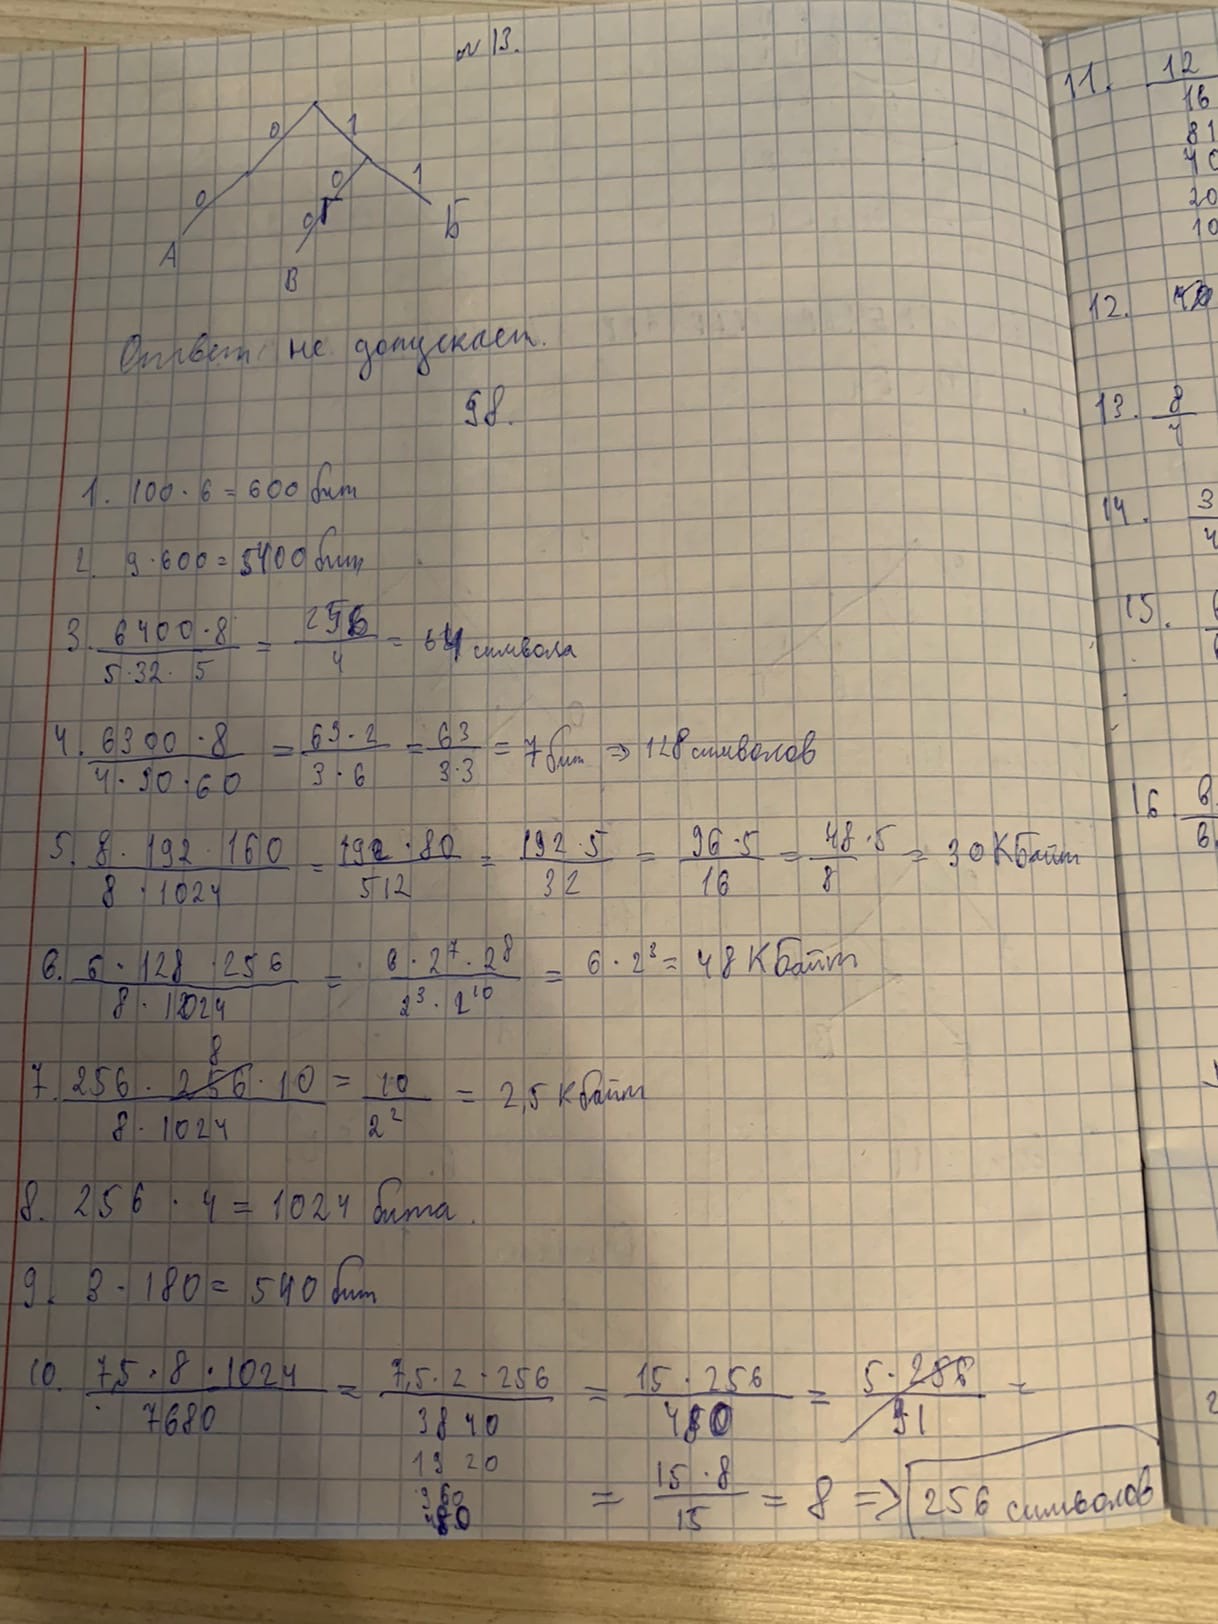 № 13.
0 1
0 0 1
0 Г Б
А
В
Ответ: не допускает.
§8.
1. 100 · 6 = 600 бит
2. 9 · 600 = 5400 бит
3. 6400 · 8 / 5 · 32 · 5 = 256 / 4 = 64 символа
4. 6300 · 8 / 4 · 90 · 60 = 63 · 2 / 3 · 6 = 63 / 3 · 3 = 7 бит => 128 символов
5. 8 · 192 · 160 / 8 · 1024 = 192 · 80 / 512 = 192 · 5 / 32 = 96 · 5 / 16 = 48 · 5 / 8 = 30 Кбайт
6. 6 · 128 · 256 / 8 · 1024 = 6 · 2⁷ · 2⁸ / 2³ · 2¹⁰ = 6 · 2³ = 48 Кбайт
8
7. 256 · 256 · 10 / 8 · 1024 = 10 / 2² = 2,5 Кбайт
8. 256 · 4 = 1024 бита.
9. 3 · 180 = 540 бит
10. 7,5 · 8 · 1024 / 7680 = 7,5 · 2 · 256 / 3840 = 15 · 256 / 480 =
1920
960
480
= 15 · 8 / 15 = 8 => 256 символов
11. 12
16
81
40
20
10
12.
13. 8
14. 3
15.
16